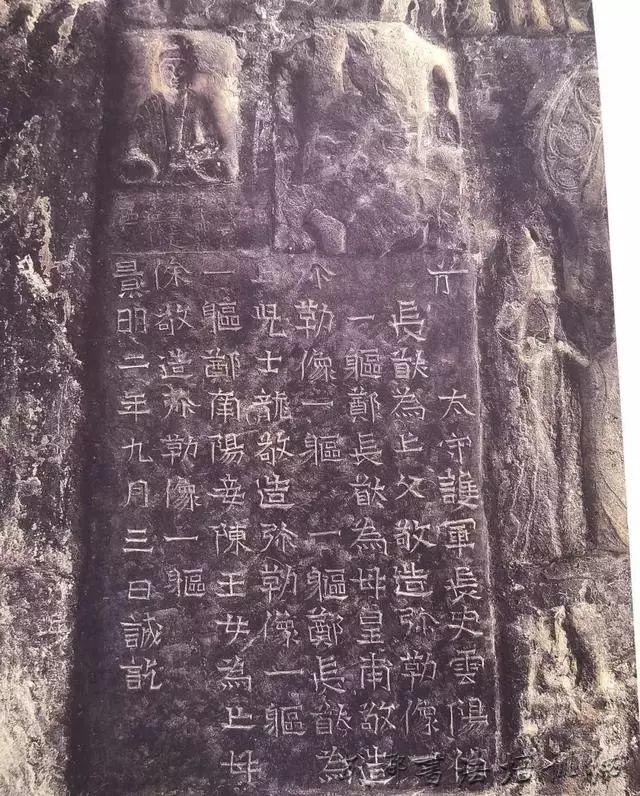 太守護軍長史雲陽伯
長猷為亡父敬造弥勒像
一軀鄭長猷為母皇甫敬造
勒像一軀 一軀鄭長猷為
亡児士龍敬造弥勒像一軀
一軀鄭南陽妾陳王女為亡母
徐敬造弥勒像一軀
景明二年九月三日誡訖